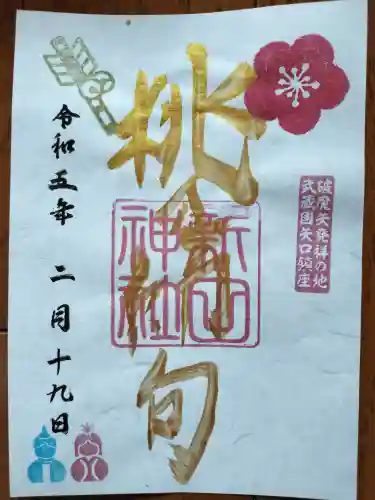 破魔矢発祥の地
武蔵国矢口鎮座
桃節句
新田
神社
令和五年 二月十九日